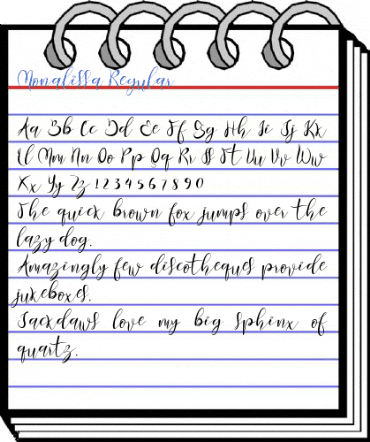 Monalissa Regular
Aa Bb Cc Dd Ee Ff Gg Hh Ii Jj Kk
Ll Mm Nn Oo Pp Qq Rr Ss Tt Uu Vv Ww
Xx Yy Zz 1 2 3 4 5 6 7 8 9 0
The quick brown fox jumps over the
lazy dog.
Amazingly few discotheques provide
jukeboxes.
Jackdaws love my big sphinx of
quartz.